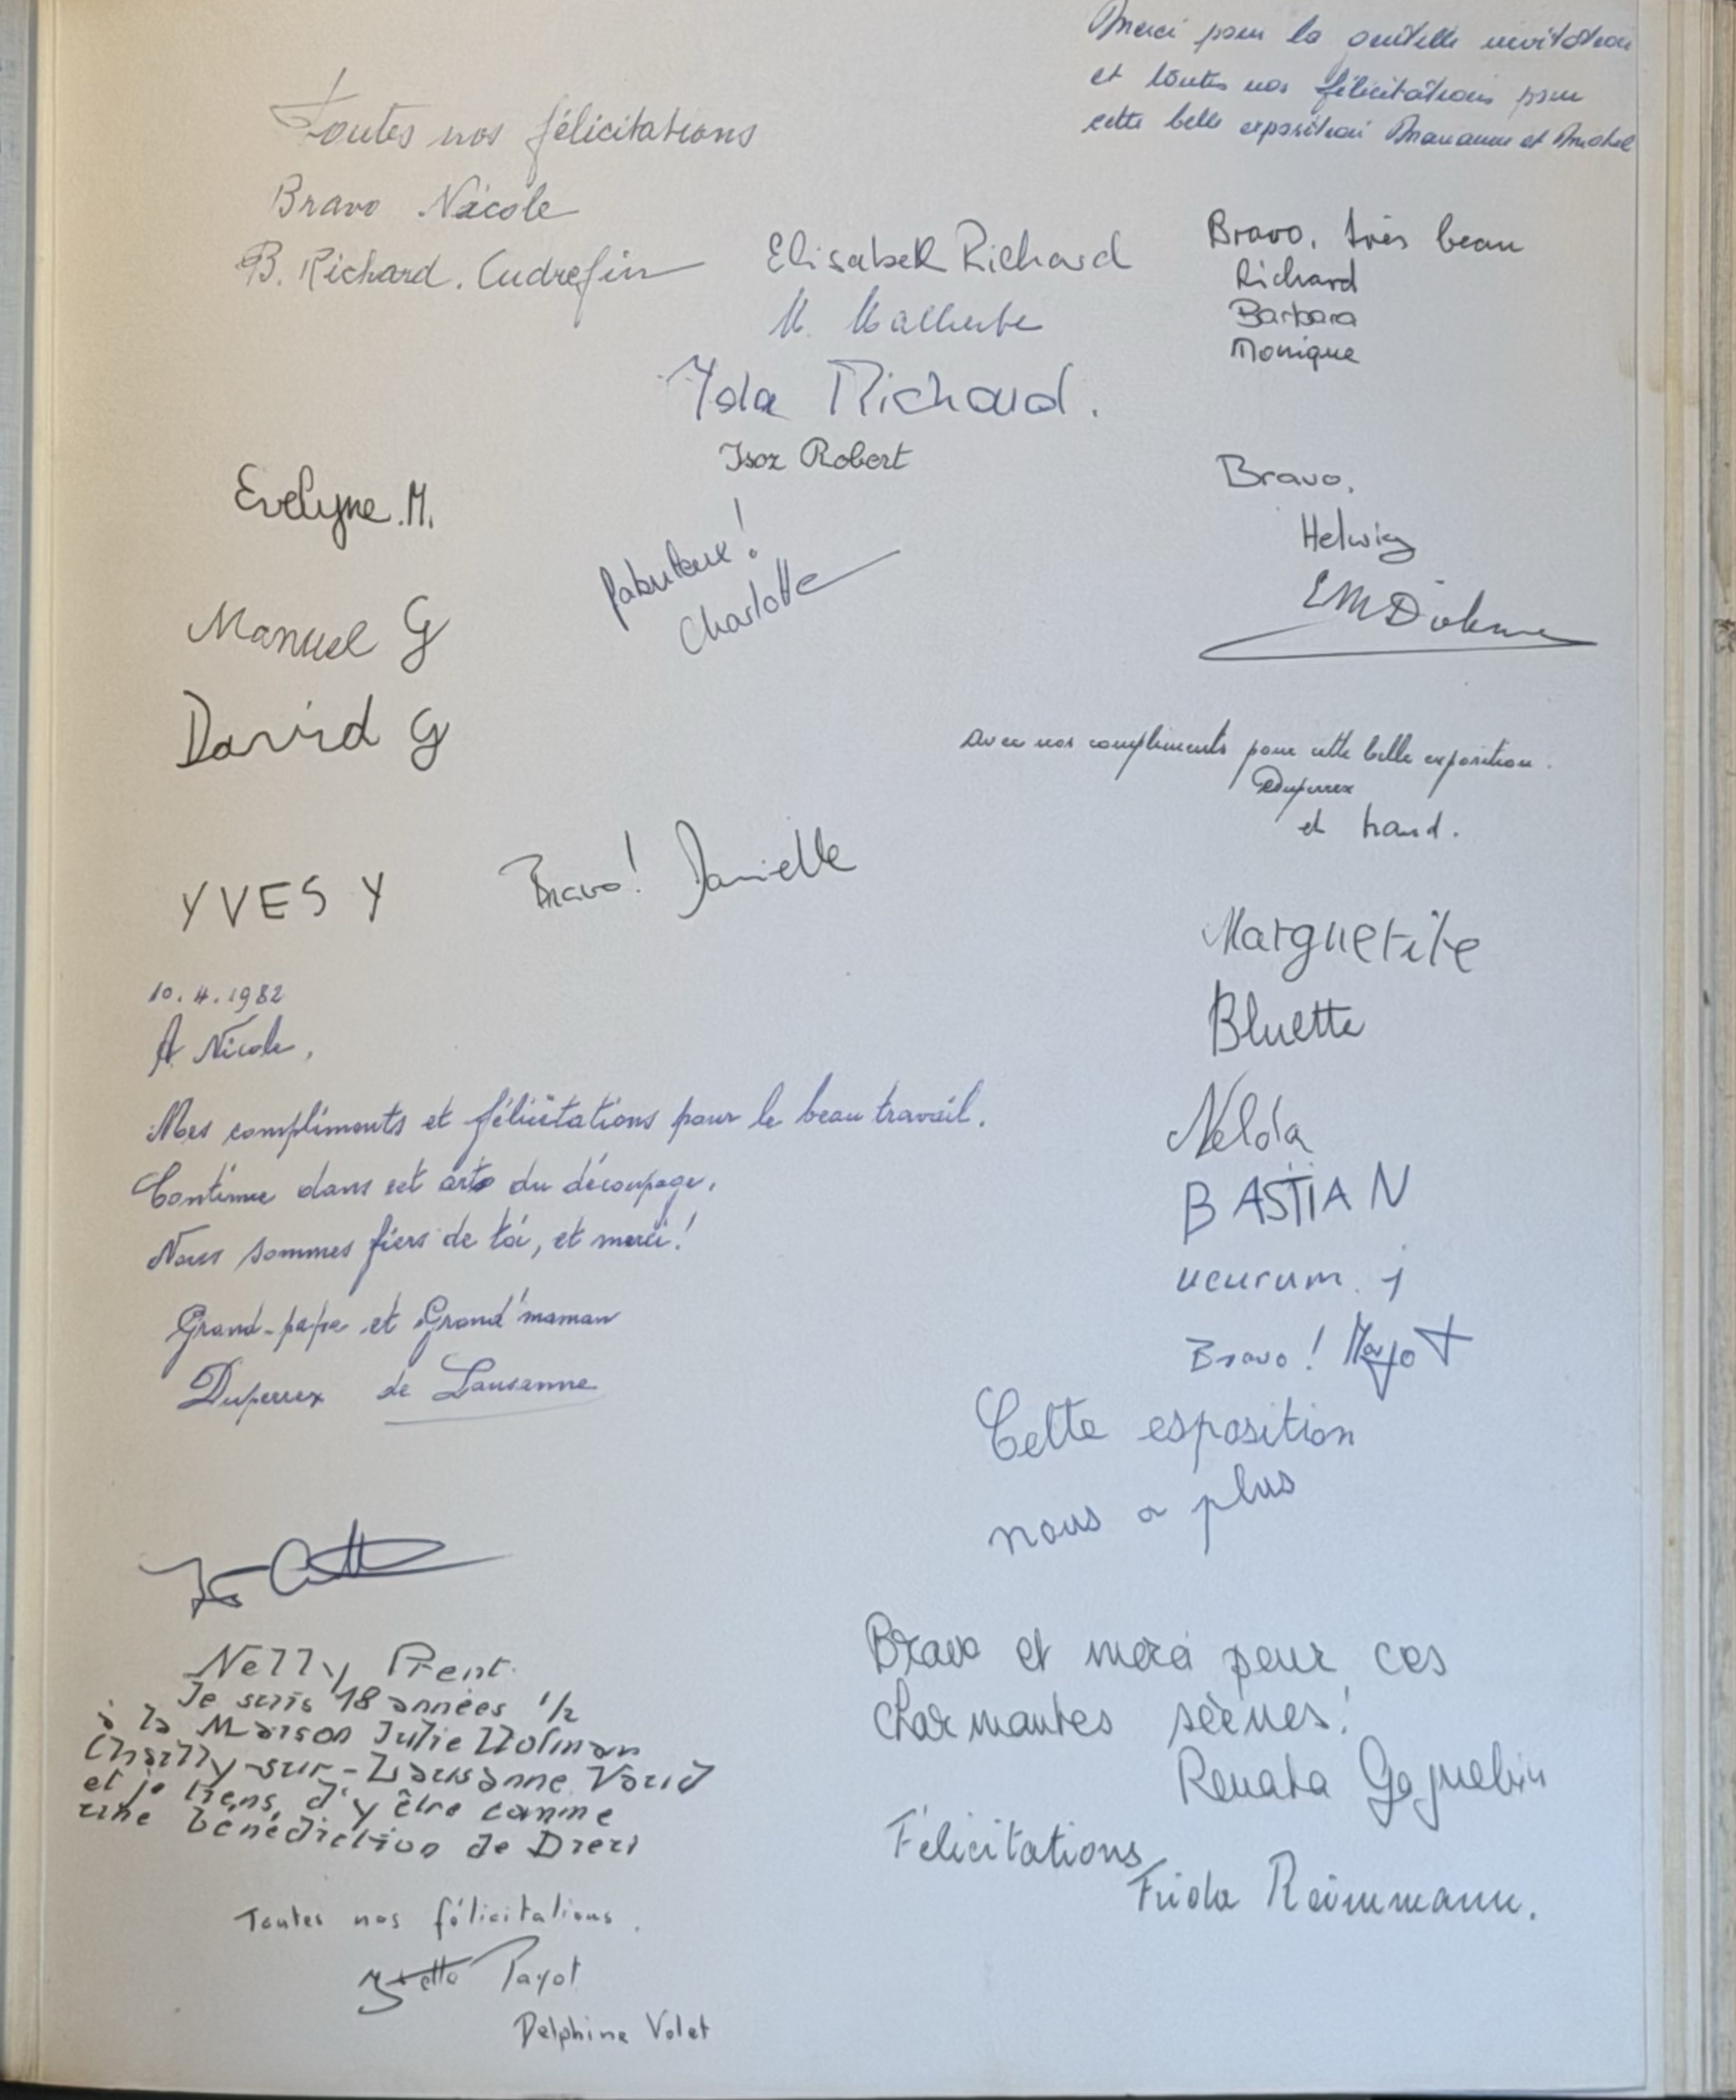 Merci pour la gentille invitation
et toutes nos félicitations pour
cette belle exposition Marianne et Michel
Toutes nos félicitations
Bravo Nicole
B. Richard. Cudrefin
Elisabeth Richard
M. Malherbe
Yola Richard.
Isoz Robert
Bravo, très beau
Richard
Barbara
Monique
Evelyne.M.
fabuleux!
Charlotte
Bravo,
Helwig
Manuel G
David G
Avec nos compliments pour cette belle exposition.
Duperrex
et
YVES Y
Bravo! Danielle
Marguerite
Bluette
Nelda
BASTIAN
10.4.1982
A Nicole,
Mes compliments et félicitations pour le beau travail.
Continue dans cet arts du découpage.
Nous sommes fiers de toi, et merci!
Grand-papa et Grand'maman
Duperrex de Lausanne
ucurum. j
Bravo! Margot
Cette esposition
nous a plus
Nelly
Je suis 18 années 1/2
à la Maison Julie Hofmann
Chailly-sur-Lausanne Vaud
et je tiens d'y être comme
une bénédiction de Dieu
Toutes nos félicitations.
Payot
Delphine Volet
Bravo et merci pour ces
charmantes scènes!
Renata Gognebin
Félicitations
Frida Reimmann.